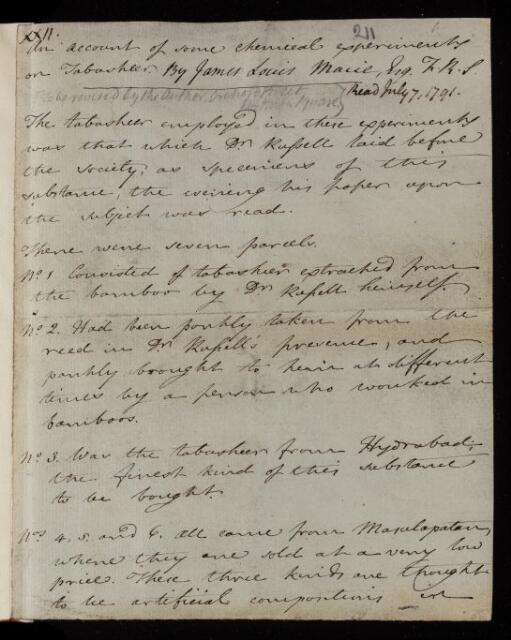 XXII.
211
An account of some chemical experiments
on Tabasheer. By James Louis Macie, Esq. F.R.S
Read July 7, 1791.
To be revised by the Author,
The tabasheer employed in these experiments
was that which Dr Russell laid before
the society, as specimens of this
substance, the evening his paper upon
the subject was read.
There were seven parcels.
No. 1 Consisted of tabasheer extracted from
the bamboo by Dr Russell himself.
No. 2. Had been partly taken from the
reed in Dr Russell's presence, and
partly brought to him at different
times by a person who worked in
bamboos.
No. 3. Was the tabasheer from Hydrabad;
the finest kind of this substance
to be bought.
Nos 4, 5, and 6. all came from Masulapatam,
where they are sold at a very low
price. These three kinds are thought
to be artificial compositions in